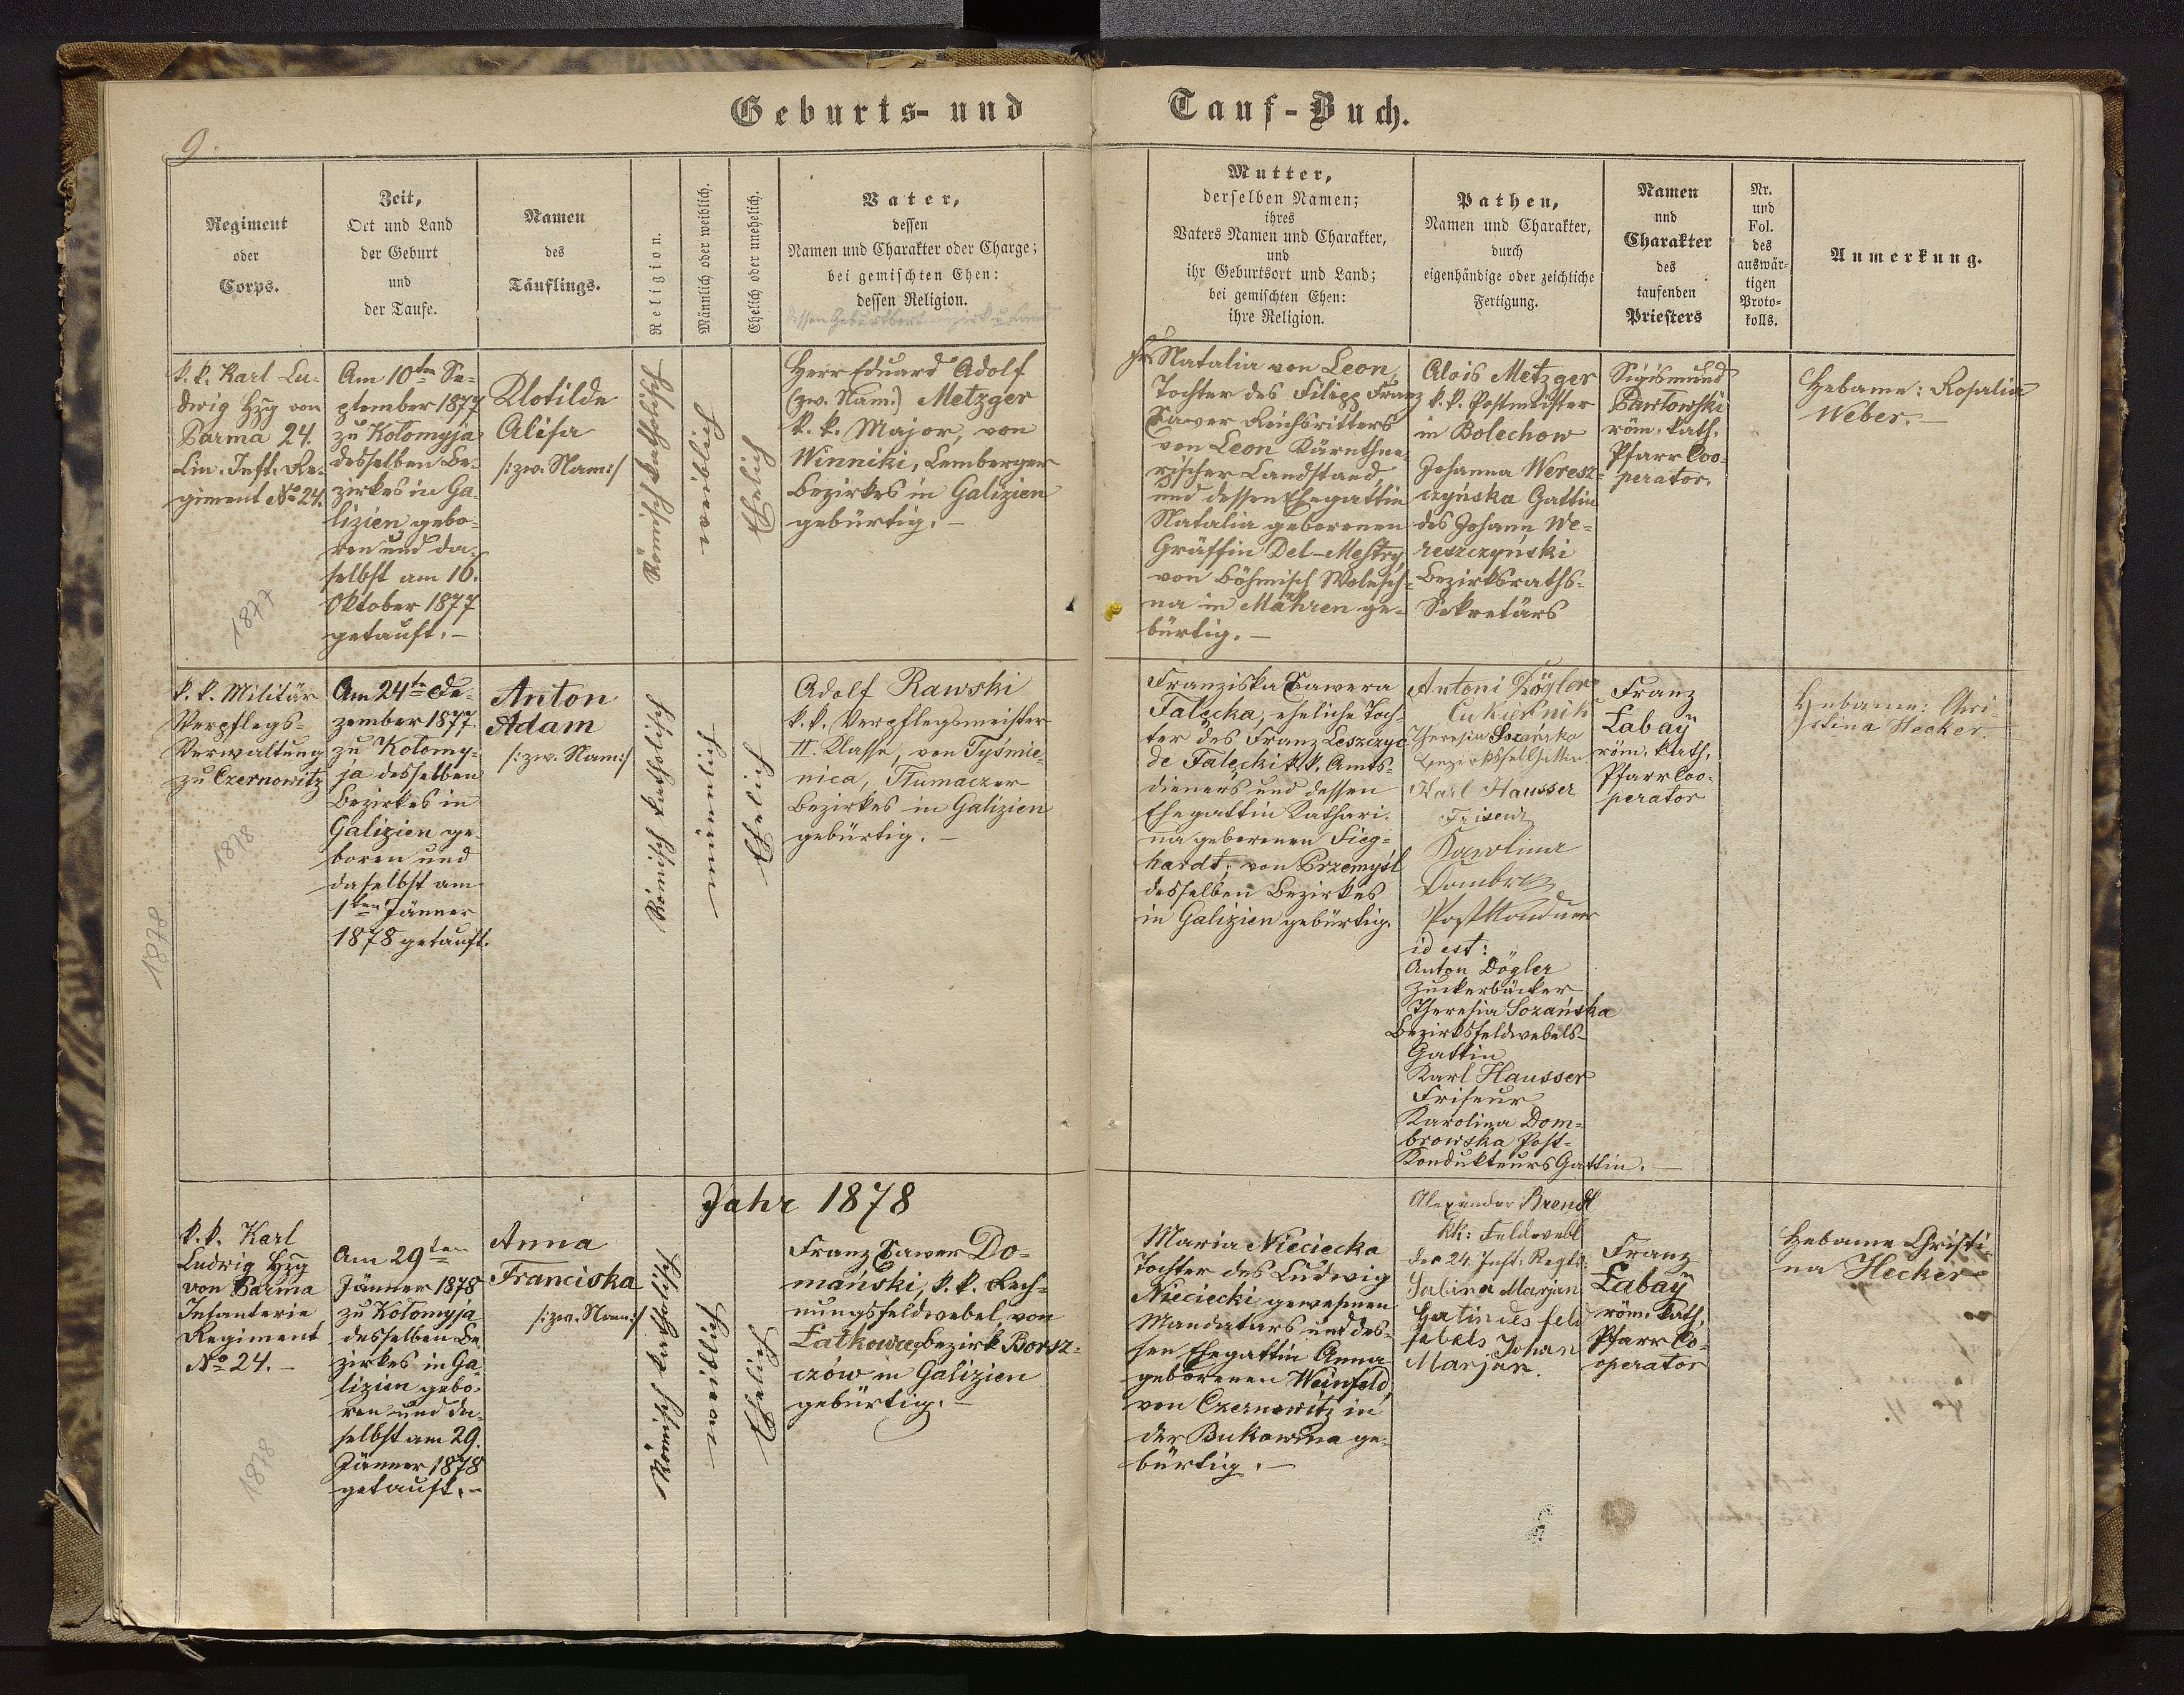 Geburts- und Tauf-Buch.
9.
Regiment
oder
Corps.
Zeit,
Ort und Land
der Geburt
und
der Taufe.
Namen
des
Täuflings.
Religion.
Männlich oder weiblich.
Ehelich oder unehelich.
Vater,
dessen
Namen und Charakter oder Charge;
bei gemischten Ehen:
dessen Religion.
dessen Geburtsort
Mutter,
derselben Namen;
ihres
Vaters Namen und Charakter,
und
ihr Geburtsort und Land;
bei gemischten Ehen:
ihre Religion.
Pathen,
Namen und Charakter,
durch
eigenhändige oder zeichliche
Fertigung.
Namen
und
Charakter
des
taufenden
Priesters
Nr.
und
Fol.
des
auswär-
tigen
Proto-
kolls.
Anmerkung.
k. k. Karl Lu-
dwig Hzg von
Parma 24.
Lin. Inft. Re-
giment No 24.
1877
Am 10ten Se-
ptember 1877
zu Kołomyja
desselben Be-
zirkes in Ga-
lizien gebo-
ren und da-
selbst am 16.
Oktober 1877
getauft. –
Klotilde
Alisa
/:zw. Nam:/
Römisch katholisch
weiblich
Ehelich
Herr Eduard Adolf
(zw. Nam:) Metzger
k. k. Major, von
Winniki, Lemberger
Bezirkes in Galizien
gebürtig. –
Natalia von Leon,
Tochter des Filipp Franz
Xawer Reichsritters
von Leon Kärnthne-
rischer Landstand,
und dessen Ehegattin
Natalia geborenen
Gräffin Del-Mestry,
von Böhmisch Wolesch-
na in Mähren ge-
bürtig. –
Alois Metzger
k. k. Postmeister
in Bolechow
Johanna Weresz-
czyńska Gattin
des Johann We-
reszczyński
Bezirksraths-
Sekretärs
Sigismund
Pawłowski
röm. kath.
Pfarr Coo-
perator.
Hebame: Rosalia
Weber. –
k. k. Militär
Verpflegs-
Verwaltung
zu Czernowitz
1878
1878
Am 24te De-
zember 1877
zu Kołomy-
ja desselben
Bezirkes in
Galizien ge-
boren und
daselbst am
1ten Jänner
1878 getauft.
Anton
Adam
/:zw. Nam:/
Römisch katholisch
männlich
Ehelich
Adolf Rawski
k. k. Verpflegsmeister
II. Klasse, von Tyśmie-
nica, Tłumaczer
Bezirkes in Galizien
gebürtig. –
Franziska Xawera
Fałęcka, eheliche Toch-
ter des Franz Leszczyc
de Fałęcki k. k. Amts-
dieners und dessen
Ehegattin Kathari-
na geborenen Sieg-
hardt, von Przemyśl
desselben Bezirkes
in Galizien gebürtig.
Antoni Dögler
Cukiernik
Theresia Sozańska
Karl Hausser
Friseur
Karolina
id est:
Anton Dögler
Zuckerbäcker
Theresia Sozańska
Bezirksfeldwebels-
Gattin
Karl Hausser
Friseur
Karolina Dom-
browska Post-
Kondukteurs Gattin. –
Franz
Łabaÿ
röm. kath.
Pfarr Coo-
perator
Hebame: Chri-
stina Hecker. –
Jahr 1878
k. k. Karl
Ludwig Hzg
von Parma
Infanterie
Regiment
No 24. –
1878
Am 29ten
Jänner 1878
zu Kołomyja
desselben Be-
zirkes in Ga-
lizien gebo-
ren und da-
selbst am 29.
Jänner 1878
getauft. –
Anna
Franciska
/:zw. Nam:/
Römisch katholisch
weiblich
Ehelich
Franz Xawer Do-
mański, k. k. Rech-
nungsfeldwebel, von
Łatkowce, bezirk Borsz-
czów in Galizien
gebürtig. –
Maria Nieciecka
Tochter des Ludwig
Nieciecki gewesenen
Mandatars und des-
sen Ehegattin Anna
geborenen Weinfeld,
von Czernowitz in
der Bukowina ge-
bürtig. –
Alexander Brendl
kk: Feldwebl
des 24. Inft: Regts:
Sabina Marjan
Gatin des feld
febels Johan
Marjan.
Franz
Łabaÿ
röm. kath.
Pfarr Co-
operator
Hebame Christi-
na Hecker